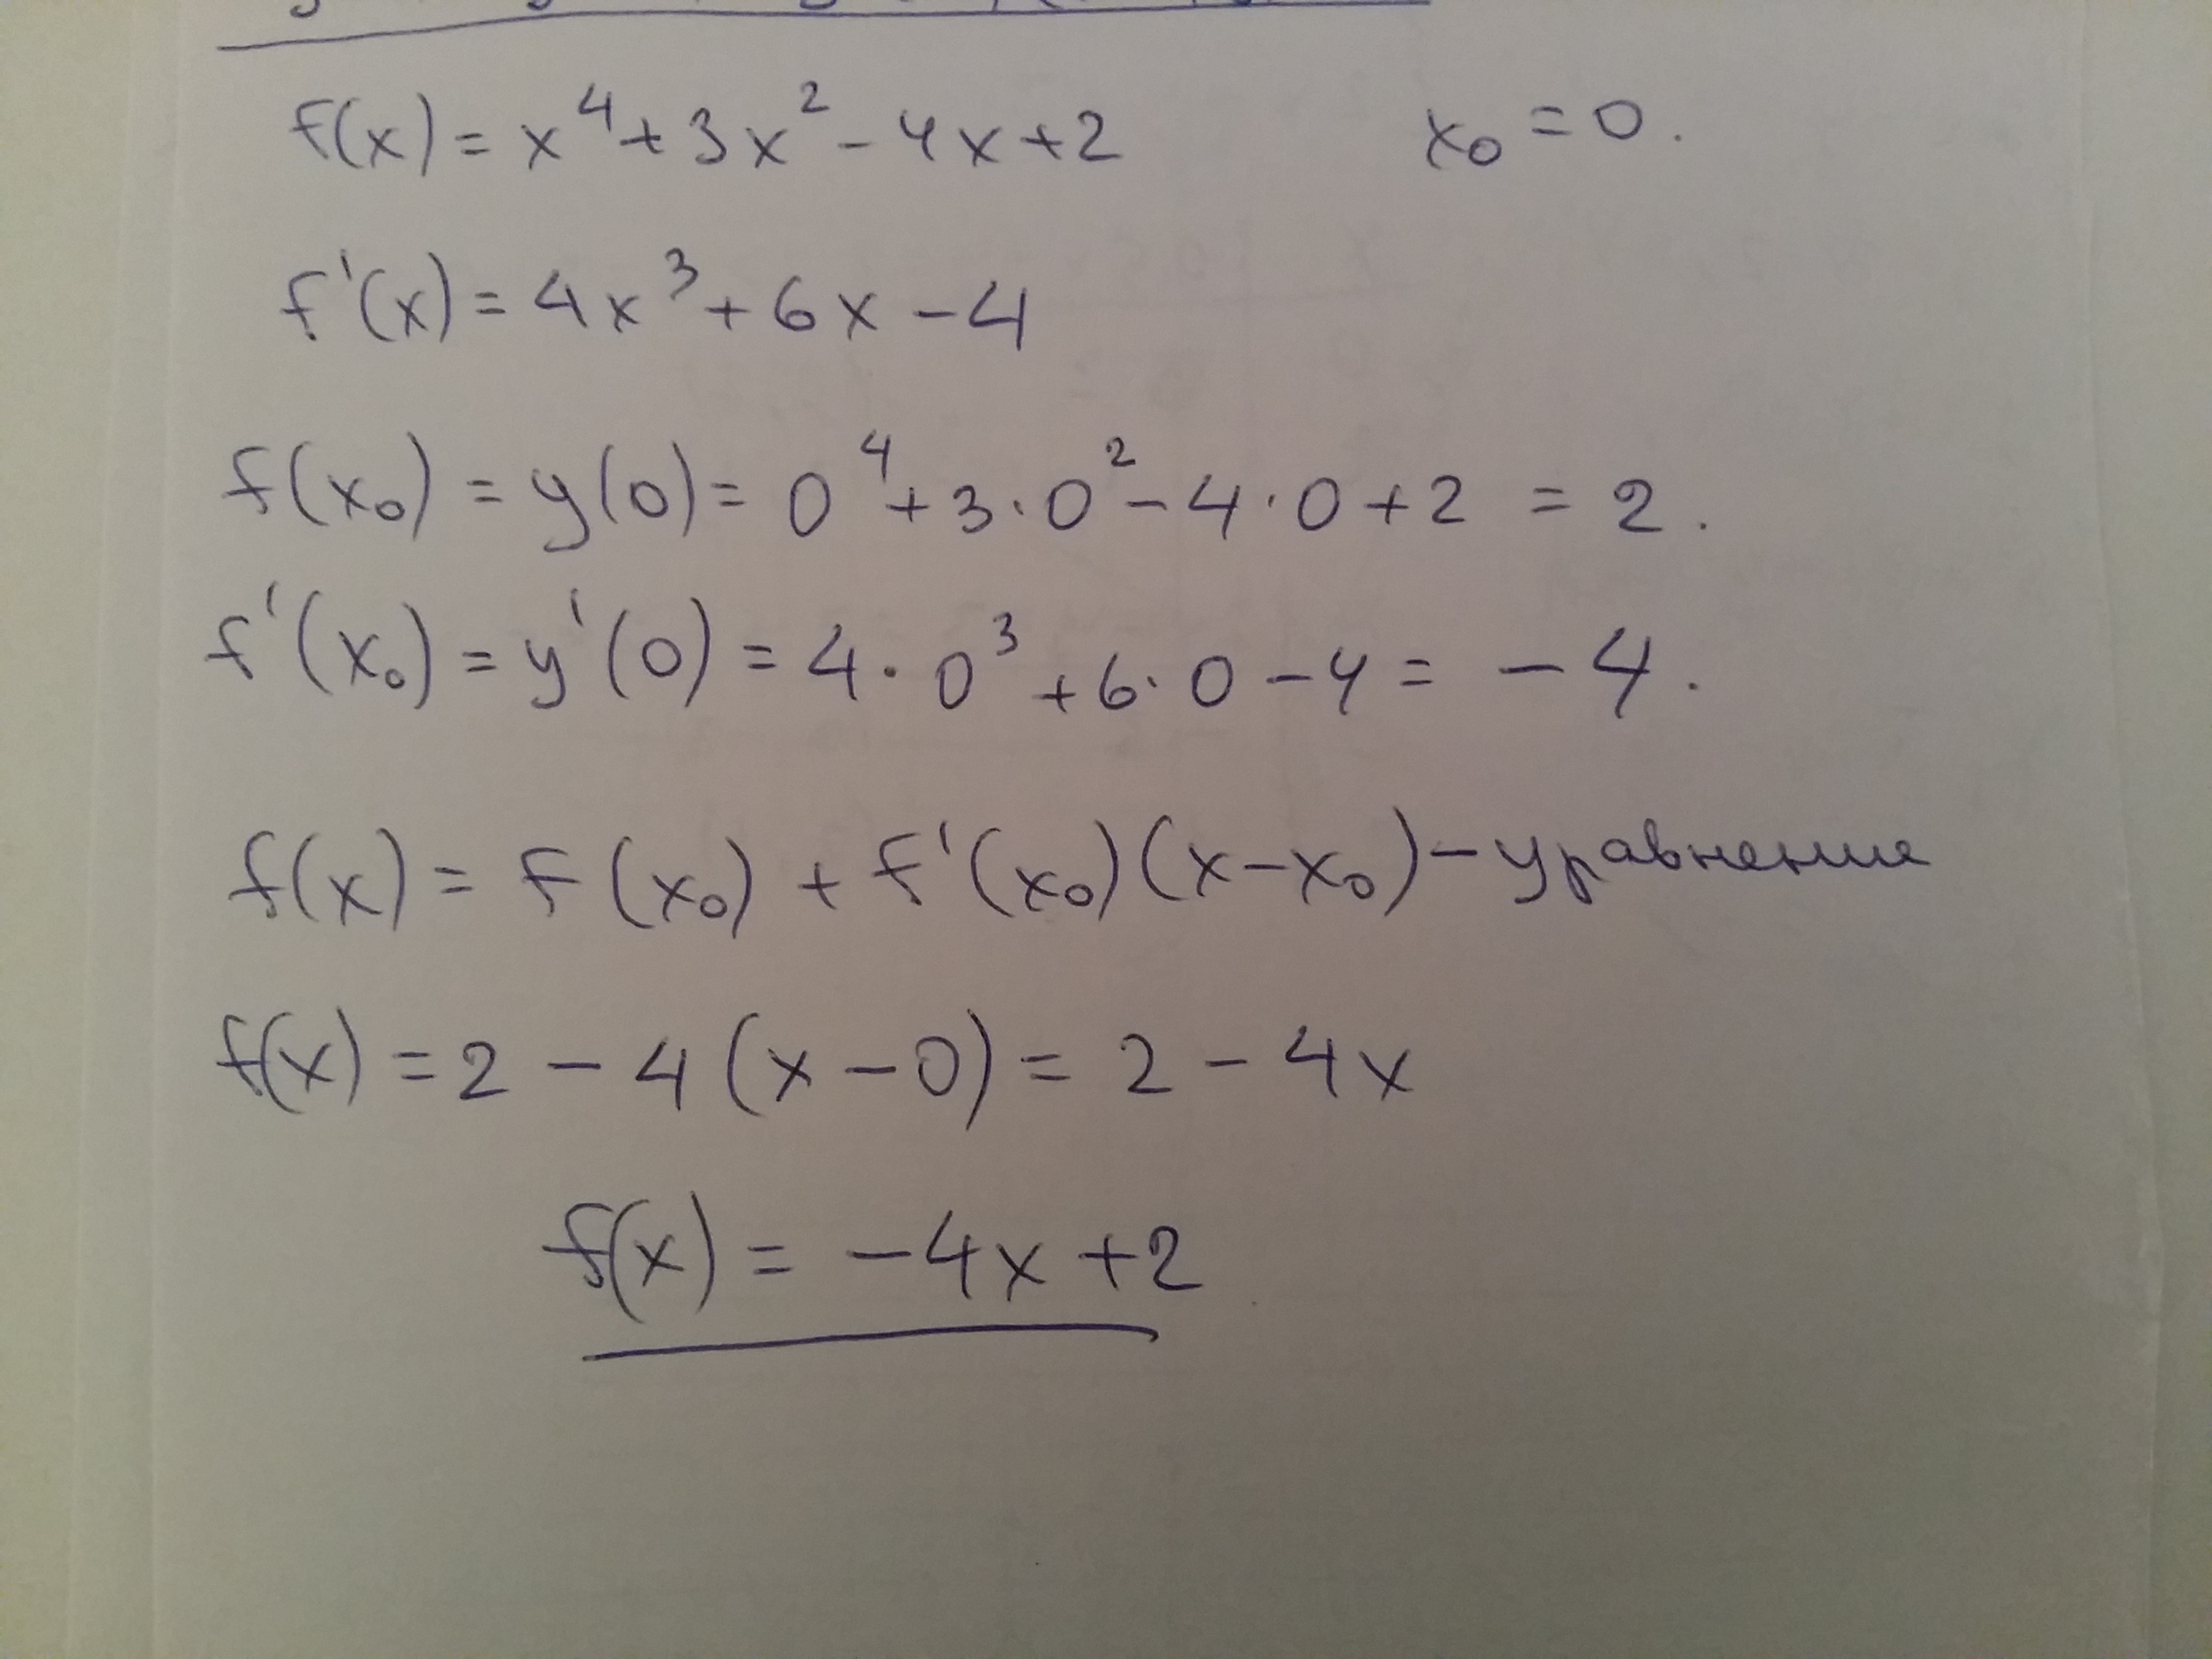 f(x) = x⁴ + 3x² - 4x + 2 x₀ = 0.
f'(x) = 4x³ + 6x - 4
f(x₀) = y(0) = 0⁴ + 3·0² - 4·0 + 2 = 2.
f'(x₀) = y'(0) = 4·0³ + 6·0 - 4 = -4.
f(x) = f(x₀) + f'(x₀)(x - x₀) - уравнение
f(x) = 2 - 4(x - 0) = 2 - 4x
f(x) = -4x + 2